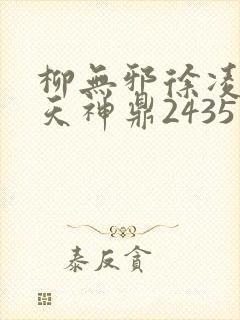 柳無邪徐凌
天神鼎2435
泰反貪